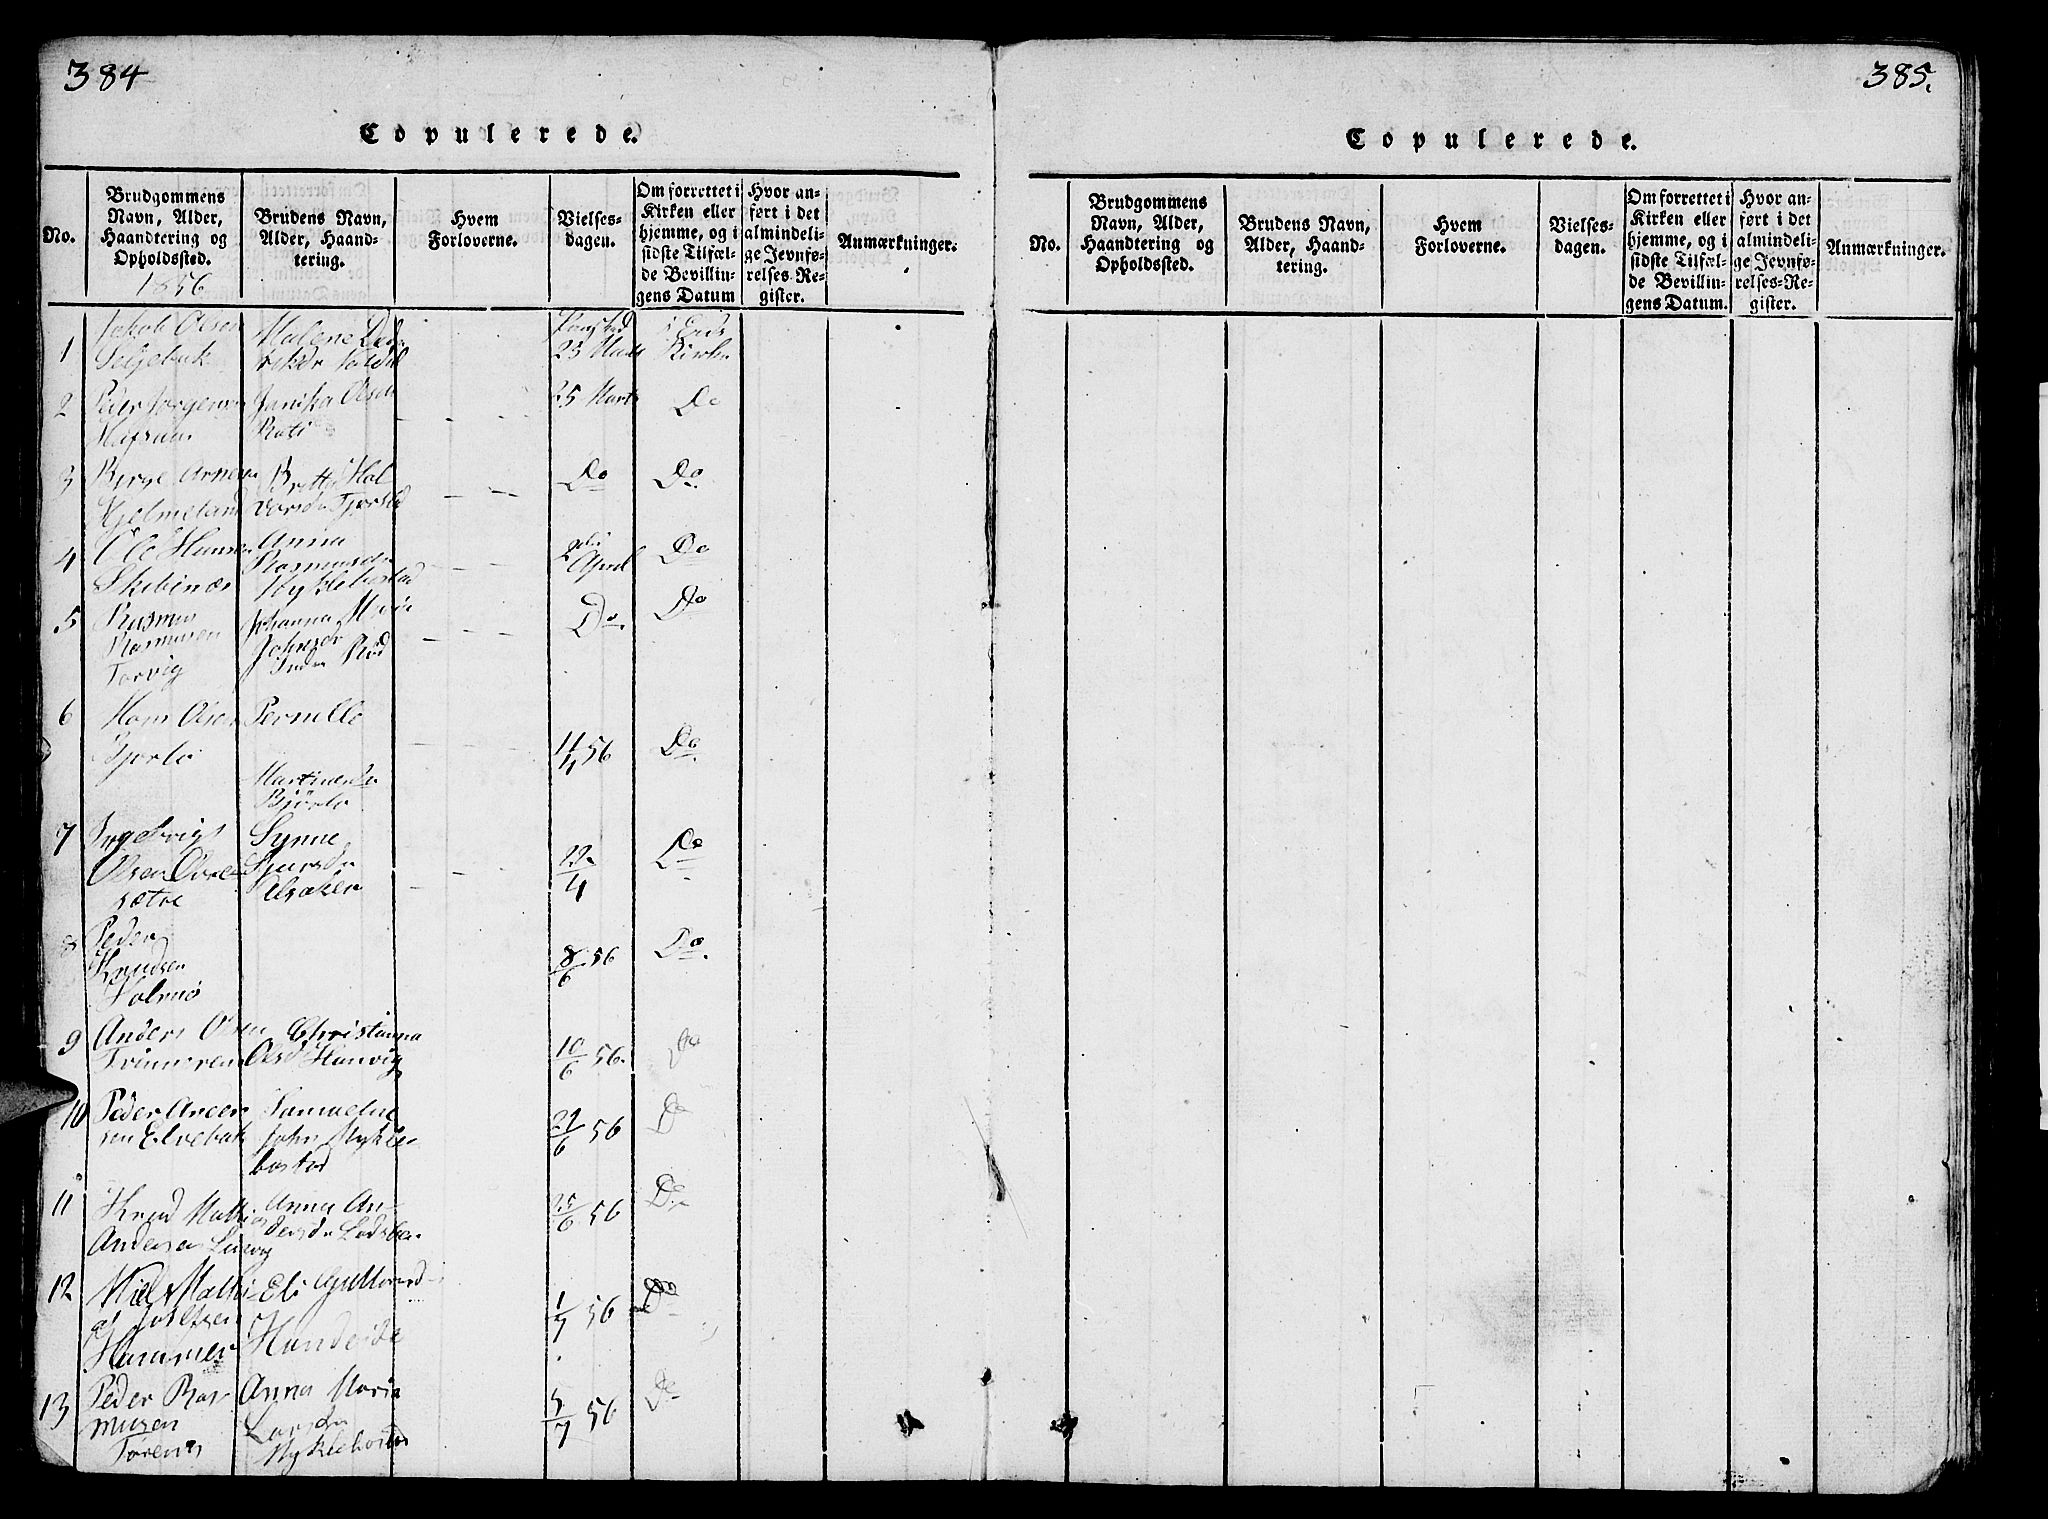 384
Copulerede.
No.
Brudgommens
Navn, Alder,
Haandtering og
Opholdssted.
1856
Brudens Navn,
Alder, Haand-
tering.
Hvem
Forloverne.
Vielses-
dagen.
Om forrettet i
Kirken eller
hjemme, og i
sidste Tilfæl-
de Bevillin-
gens Datum
Hvor an-
ført i det
almindeli-
ge Jevnfø-
relses-Re-
gister.
Anmærkninger.
1
Jakob Olsen
Seljebak
Malene
23 Mars
Kirke
2
Peder Jorgensen
Janika Olsdr
25 Marts
Do
3
Birge Arnesen
Hjelmeland
Britte Hal
vorsdr Tjorstad
Do
Do
4
Ole Hansen
Skibenæs
Anna
Rasmusdr
Nyklebostad
2den April
Do
5
Rasmus
Rasmusen
Torvig
Johanna Marie
Johnsdr
Indre Riød
Do.
Do
6
Hans Olsen
Bjorlo
Pernelle
Martinusdr
Bjørlo
11/4 56
Do.
7
Ingebrigt
Olsen Øvre
sætre
Synne
Sjursdr
Alsaker
22/4
Do
8
Peder
Knudsen
Holmø
8/6 56
Do.
9
Anders Olsen
Christianna
Olsd Hanvig
10/6 56.
Do
10
Peder Ander
sen Elvebak
Samueline
John Nykle-
bostad
24/6 56
Do
11
Knud Mathias
Andersen Leivig
Anna An-
dersdr
25/6 56
Do
12
Niels Mathi
as Josefsen
Hammer
Eli Guttormd
Hundeide
1/7 56
Do
13
Peder Ras
musen
Torenes
Anna Maria
Larsdr
Nyklebostad
5/7 56
Do
385.
Copulerede.
No.
Brudgommens
Navn, Alder,
Haandtering og
Opholdssted.
Brudens Navn,
Alder, Haand-
tering.
Hvem
Forloverne.
Vielses-
dagen.
Om forrettet i
Kirken eller
hjemme, og i
sidste Tilfæl-
de Bevillin-
gens Datum.
Hvor an-
ført i det
almindeli-
ge Jevnfø-
relses-Re-
gister.
Anmærkninger.